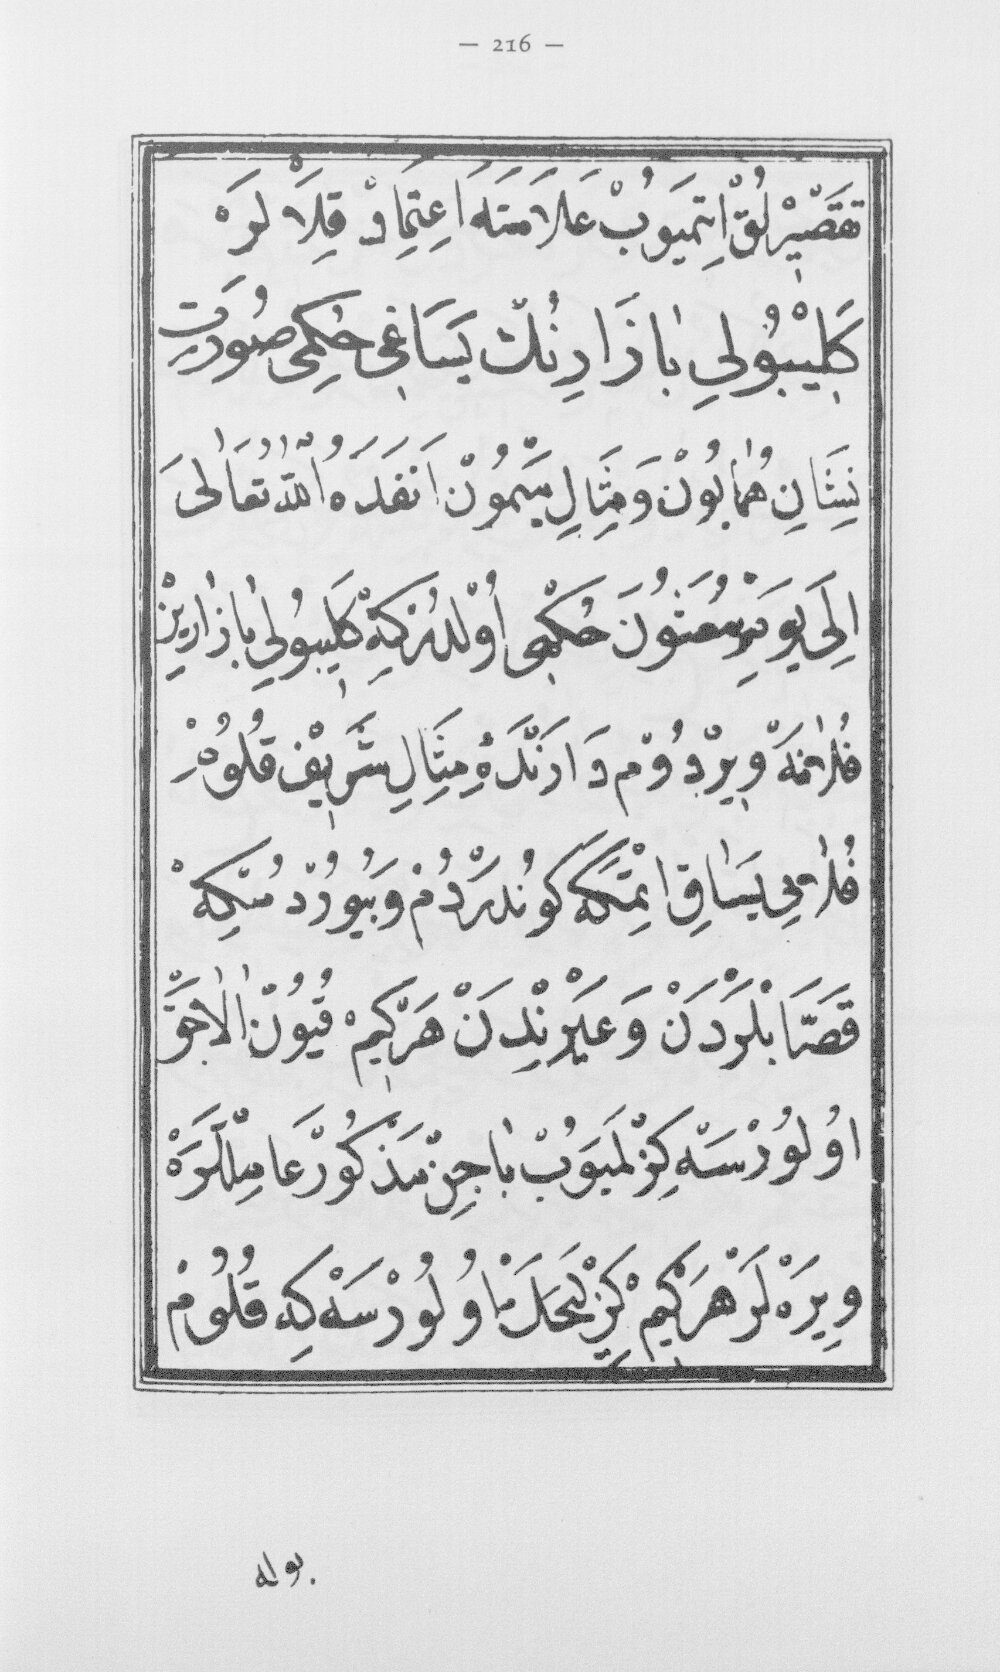 — 216 —
تقصيرلق اتميوب علامته اعتماد قلالره
كليبولي بازارنك يساغى حكمى صورت
نشان همايون ومثال ميمون انفذه الله تعالى
الى يوم يبعثون حكمى اولدركه كليبولي بازارين
فلانه ويردوم دارنده مثال شريف قلوم
فلانى يساق اتمكه كوندردم وبيوردمكه
قصابلردن وغيرندن هركيم قيون الاجق
اولورسه كزلميوب باجن مذكور عامللره
ويره لر هركيم كزلجك اولورسه كه قلوم
بوله